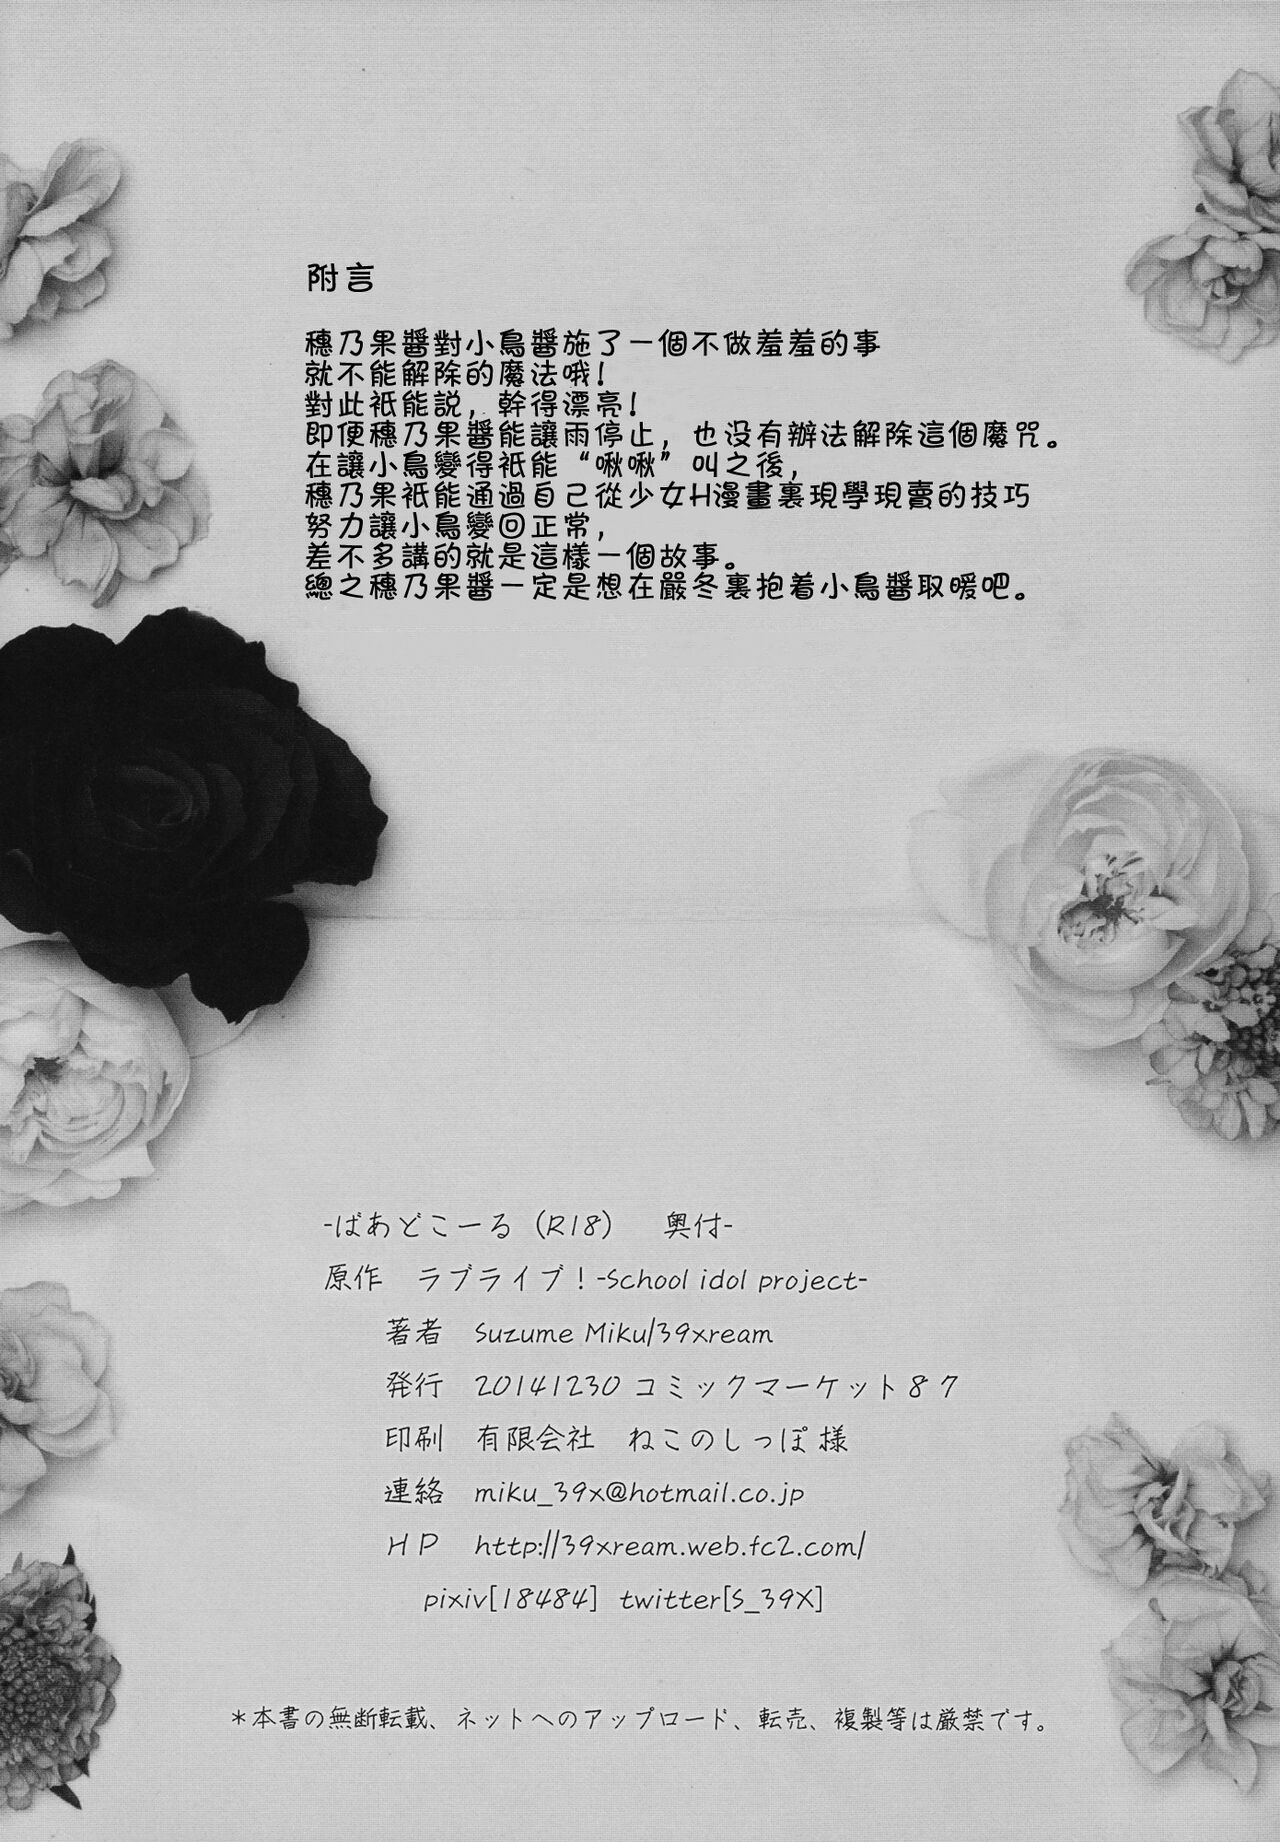 附言
穗乃果醬對小鳥醬施了一個不做羞羞的事
就不能解除的魔法哦！
對此衹能説，幹得漂亮！
即便穗乃果醬能讓雨停止，也没有辦法解除這個魔咒。
在讓小鳥變得衹能“啾啾”叫之後，
穗乃果衹能通過自己從少女H漫畫裏現學現賣的技巧
努力讓小鳥變回正常，
差不多講的就是這樣一個故事。
總之穗乃果醬一定是想在嚴冬裏抱着小鳥醬取暖吧。
-ばあどこーる（R18）　奥付-
原作　ラブライブ！-School idol project-
著者　Suzume Miku/39xream
発行　20141230 コミックマーケット８７
印刷　有限会社　ねこのしっぽ 様
連絡　miku_39x@hotmail.co.jp
ＨＰ　http://39xream.web.fc2.com/
pixiv[18484]  twitter[S_39X]
＊本書の無断転載、ネットへのアップロード、転売、複製等は厳禁です。